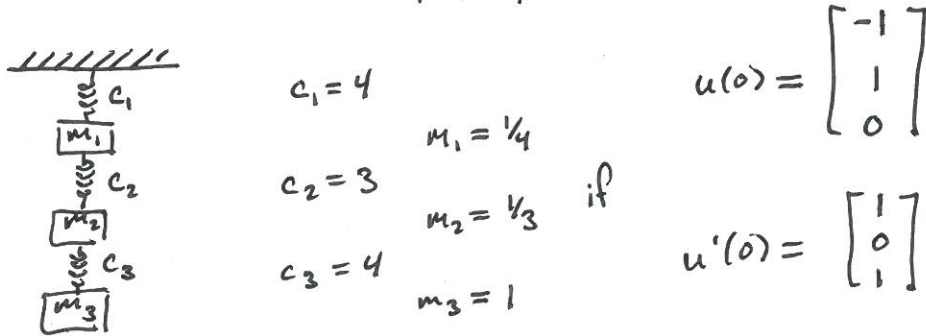 c₁
m₁
c₂
m₂
c₃
m₃
c₁ = 4
m₁ = 1/4
c₂ = 3
m₂ = 1/3
c₃ = 4
m₃ = 1
if
u(0) = [ -1
1
0 ]
u'(0) = [ 1
0
1 ]